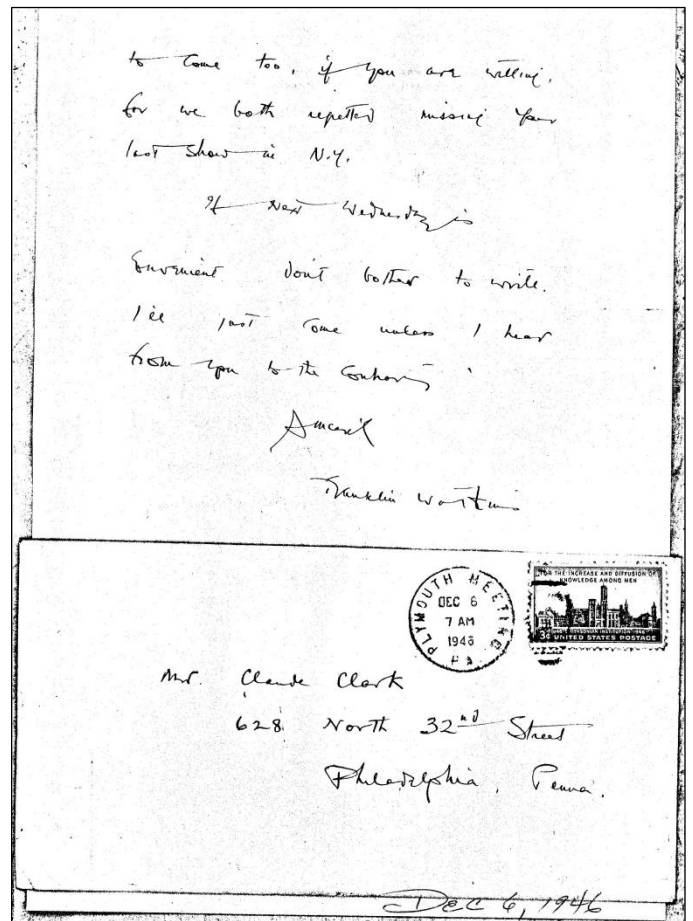 to come too, if you are willing.
for we both regretted missing your
last show in N.Y.
If next Wednesday is
convenient don't bother to write.
I'll just come unless I hear
from you to the contrary.
Sincerely
Franklin Watkins
PLYMOUTH MEETING
DEC 6
7 AM
1946
PA
FOR THE INCREASE AND DIFFUSION OF
KNOWLEDGE AMONG MEN
SMITHSONIAN INSTITUTION 1946
3¢ UNITED STATES POSTAGE
Mr. Claude Clark
628 North 32nd Street
Philadelphia, Penna.
DEC 6, 1946